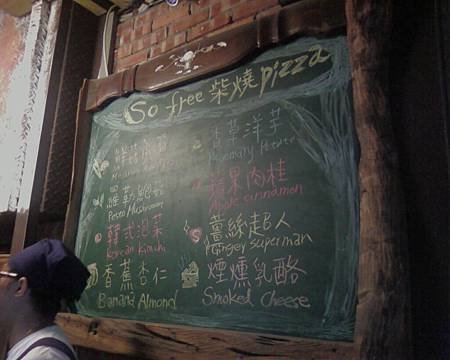 So free 柴燒 pizza
鮮菇鮑菇
羅勒鮑菇
Pesto Mushroom
韓式泡菜
Korean Kimchi
香蕉杏仁
Banana Almond
香草洋芋
Rosemary Potato
蘋果肉桂
Apple cinnamon
薑絲超人
Gingey superman
煙燻乳酪
Smoked Cheese